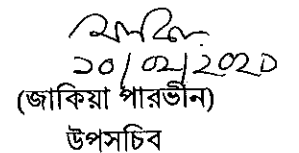 ১০/০২/২০২০
(জাকিয়া পারভীন)
উপসচিব